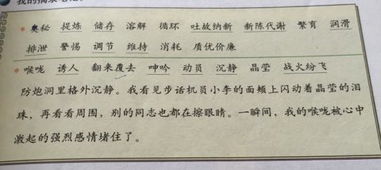 奥秘 提炼 储存 溶解 循环 吐故纳新 新陈代谢 繁育 润滑
排泄 警惕 调节 维持 消耗 质优价廉
喉咙 诱人 翻来覆去 呻吟 动员 沉静 晶莹 战火纷飞
防炮洞里格外沉静。我看见步话机员小李的面颊上闪动着晶莹的泪
珠，再看看周围，别的同志也都在擦眼睛。一瞬间，我的喉咙被心中
激起的强烈感情堵住了。